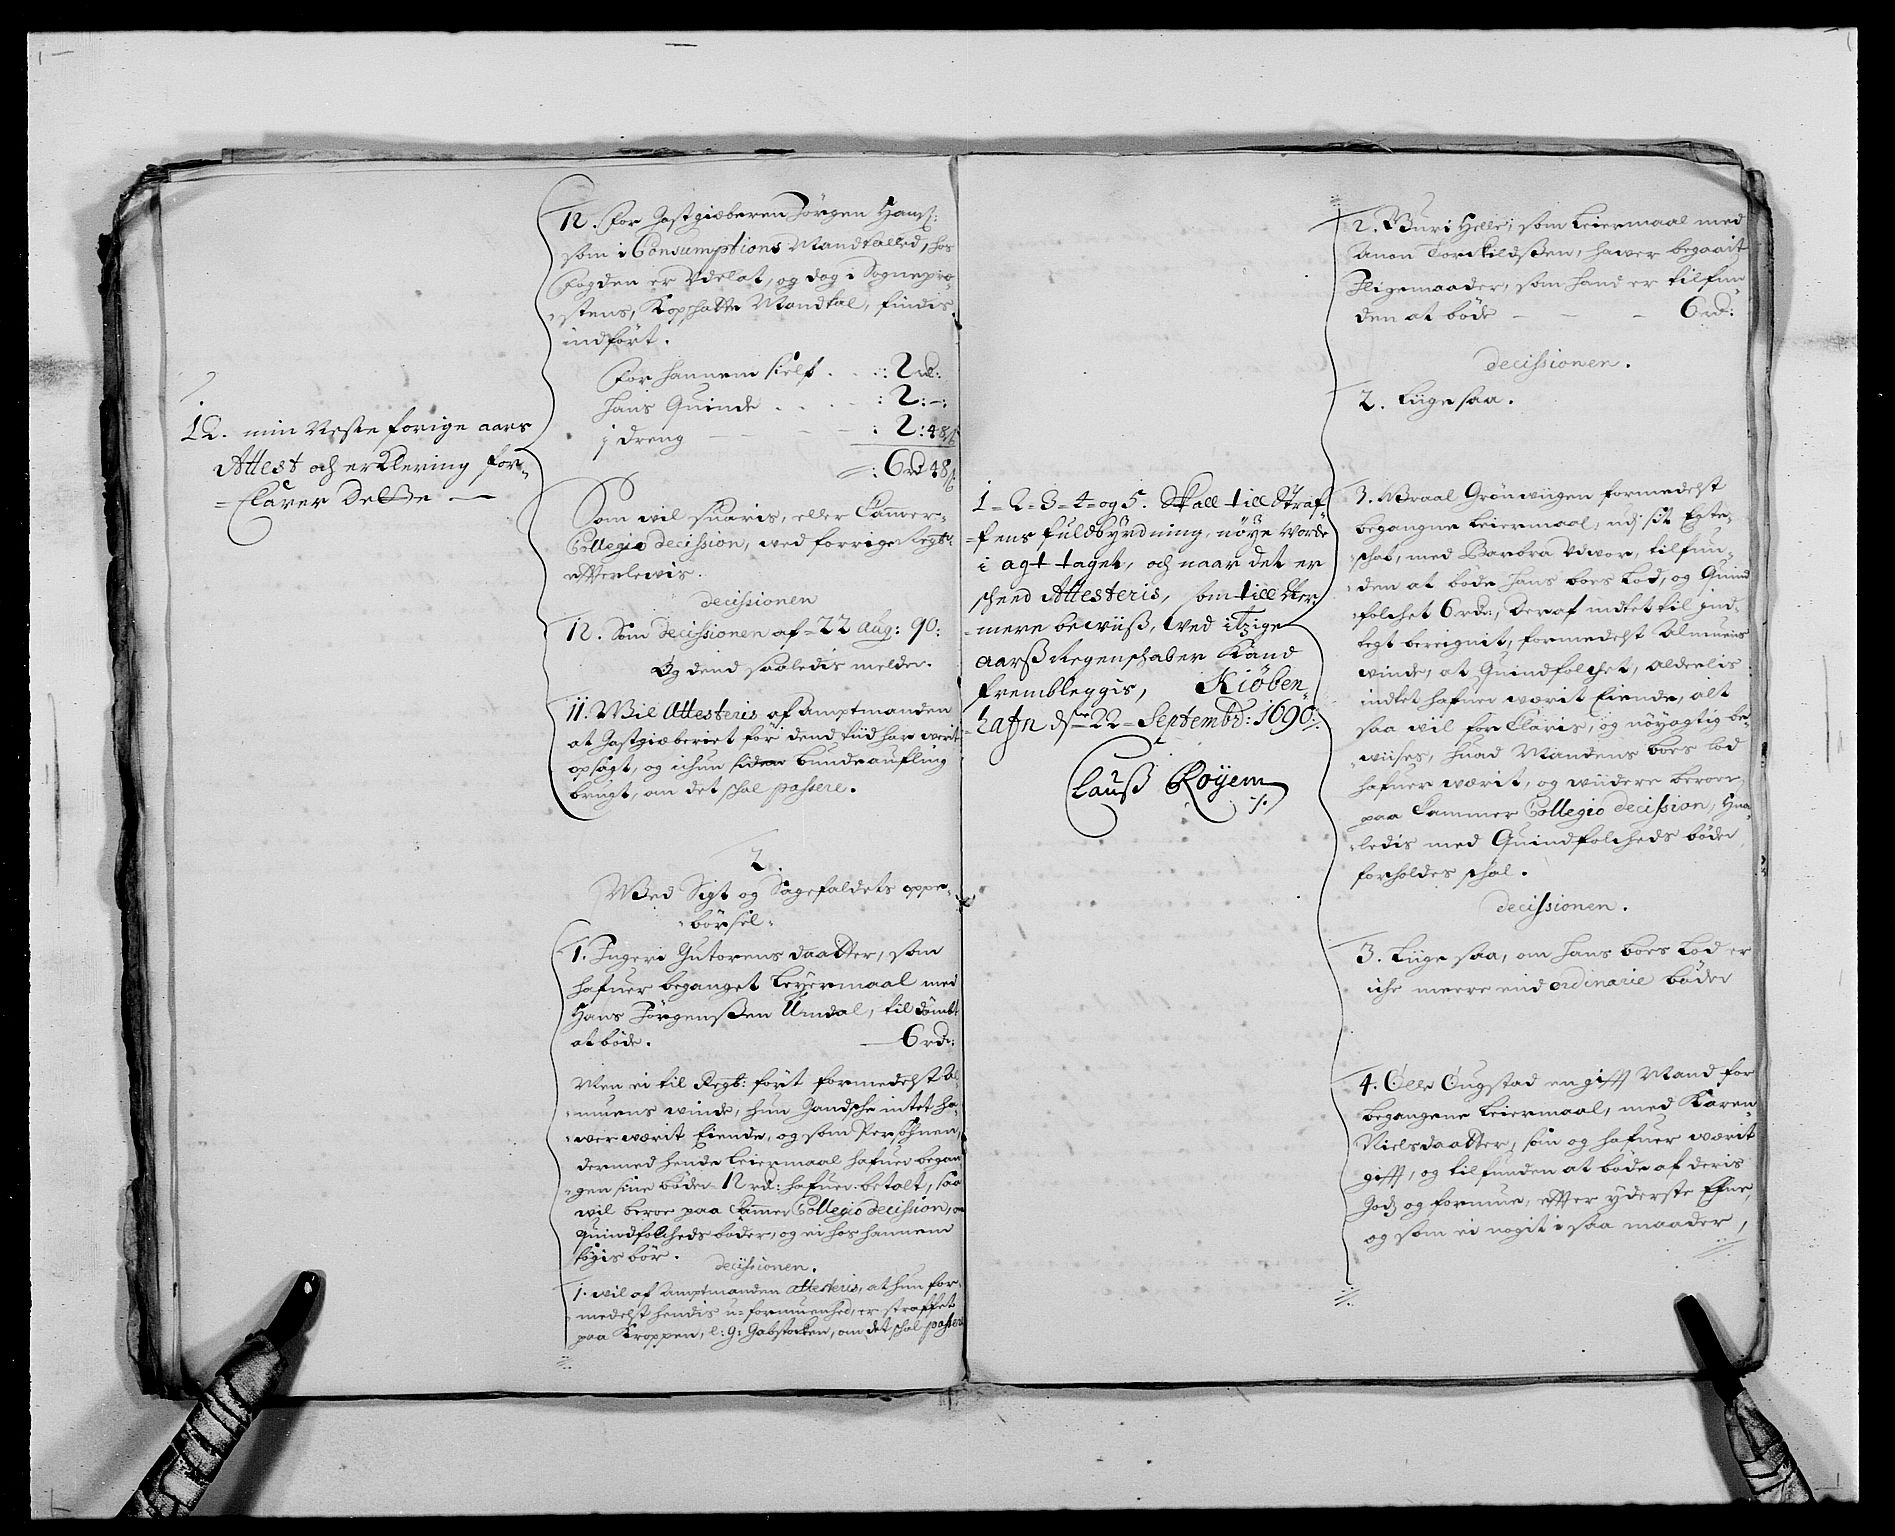 12. min Neste forige aars
Attest och erKlering for-
=Clarer Dette —
12. For Gastgiæberen Jörgen Hanss:
som i Consumptions Mandtalled, hos
Fogden er Udelat, og dog i Sognepre-
stens, Kopskatte Mandtal, findis
indfört.
For hannem sielf . . :2 rd:
Hans Quinde . . . . :2:-:
j dreng — — — :2:48 s
:6 rd 48 s
Som vil suaris, eller Cammer-
Collegio decission, ved forrige Regb:
effterlewis.
decissionen
12. Som decissionen af 22 aug: 90:
Og dend saaledis melder.
11. Wil Attesteris af Amptmanden
at Gastgiæberiet för dend tiid har werit
opsagt, og ichun siden bunde aufling
brugt, om det schal passere.
2.
Wed Sigt og Sagefaldets oppe-
börsel
1. Ingeri Gutorens daatter, som
hafuer beganget Leyermaal med
Hans Jörgenssen Umdal, til dömbt
at böde. — 6 rd:
Men ei til Regb: fört formedelst Al-
muens winde, hun Gandsche intet ha-
wer werit Eiende, og som Persohnen,
dermed hende Leiermaal hafuer began-
gen sine böder 12 rd: hafuer betalt, saa
wil beroe paa Cammer Collegio decission, om
quindfolcheds böder, og ei hos hannem
sögis bör.
decissionen.
1. wil af Amptmanden attesteris, at hun for-
medelst hendis u-formuenhed, er straffet
paa Kroppen, e: g: Gabstocken, om det schal passere
1=2=3=4=og 5. Skall till Straf-
fens fuldbyrdning, nöye worde
i agt taget, och naar det er
scheed Attesteris, som till Ner-
mere bewiiss, wed itzige
aarss Regenschaber Kand
frembleggis, Kiöben-
hafn dend 22 Septembr: 1690:
Clauss Röyem
2. Buri Helle, som Leiermaal med
Anon Torckildssen, hawer begaait
Iligemaader, som hand er tilfun-
den at böde — — — 6 rd:
decissionen.
2. Liige saa.
3. Braal Grönwiigen formedelst
begangne Leiermaal, udj sit Egte-
schab, med Barbra Udwor, tilfun-
den at böde hans boes Lod, og Quind-
folchet 6 rd:, Deraf indtet til ind-
tegt bereignit, formedelst Almuens
winde, at Quindfolchet, aldeelis
indtet hafuer wærit Eiende, alt
saa wil forClaris, og nöyagtig be-
wiises, huad Mandens boes lod
hafuer wærit, og wiidere beroer,
paa Cammer Collegio decission, Hua-
ledis med Quindfolcheds böder
forholdes schal.
decissionen.
3. Liige saa, om hans boes Lod er
iche meere end ordinarie böder
4. Olle Ougstad en gifft Mand for
begangene Leiermaal, med Karen
Nielsdaatter, som og hafuer wærit
gifft, og tilfunden at böde af deris
Godz og formue, effter yderste Efne,
og som ei nogit i saa maader,